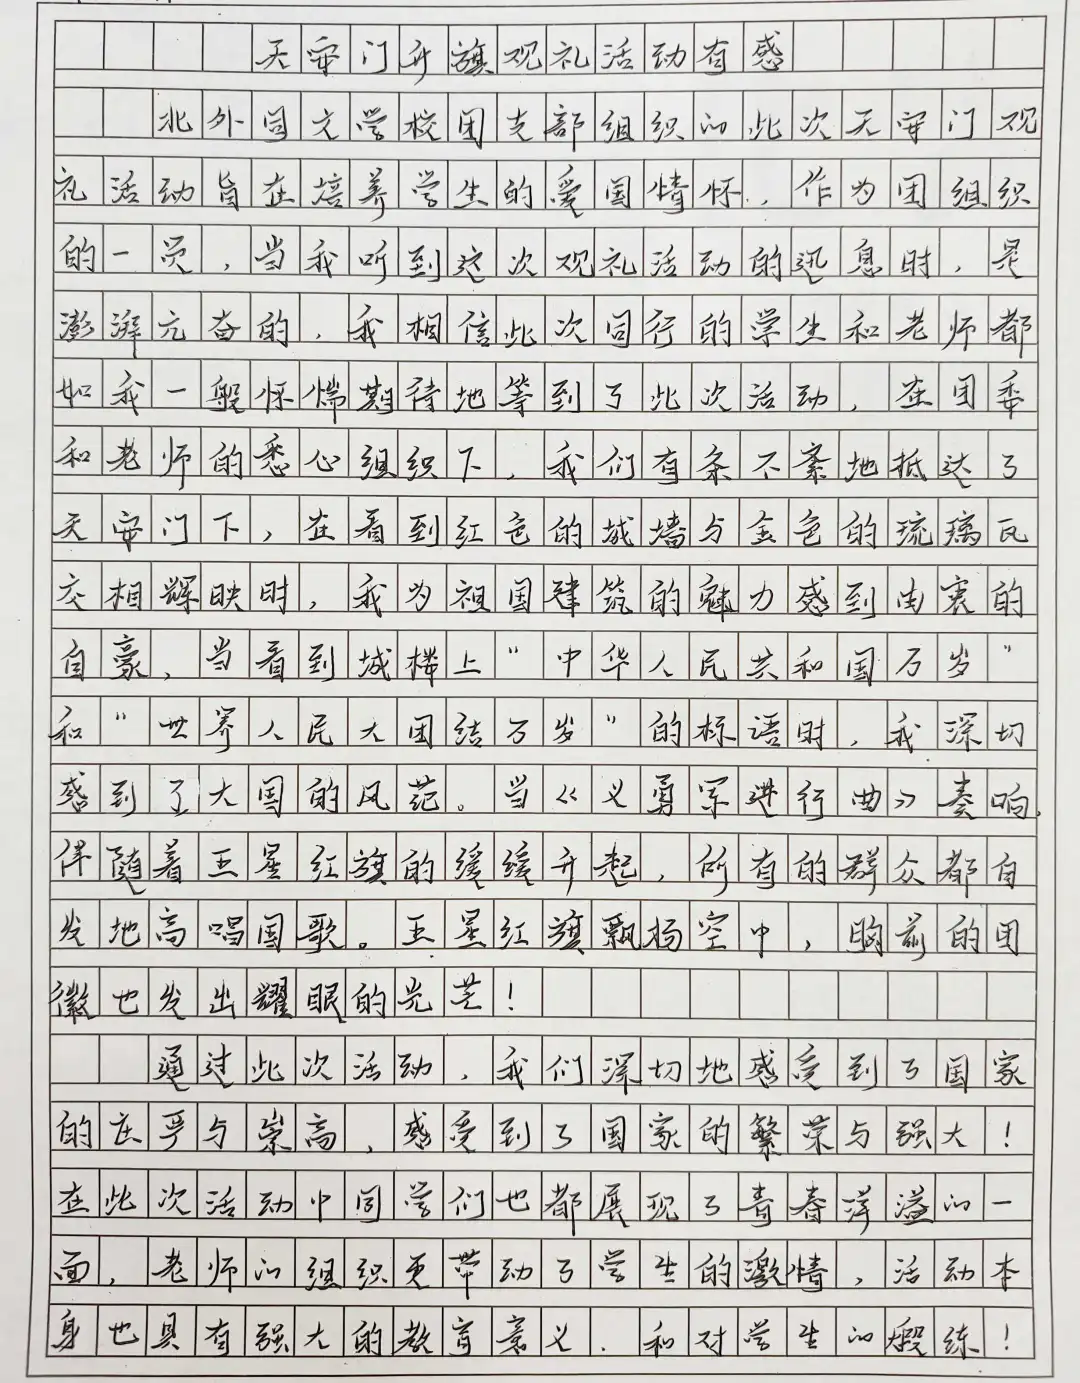 天安门升旗观礼活动有感
北外国文学校团支部组织的此次天安门观
礼活动旨在培养学生的爱国情怀，作为团组织
的一员，当我听到这次观礼活动的迅息时，是
澎湃亢奋的，我相信此次同行的学生和老师都
如我一般怀惴期待地等到了此次活动，在团委
和老师的悉心组织下，我们有条不紊地抵达了
天安门下，在看到红色的城墙与金色的琉璃瓦
交相辉映时，我为祖国建筑的魅力感到由衷的
自豪，当看到城楼上“中华人民共和国万岁”
和“世界人民大团结万岁”的标语时，我深切
感到了大国的风范。当《义勇军进行曲》奏响，
伴随着五星红旗的缓缓升起，所有的群众都自
发地高唱国歌。五星红旗飘扬空中，胸前的团
徽也发出耀眼的光芒！
通过此次活动，我们深切地感受到了国家
的庄严与崇高，感受到了国家的繁荣与强大！
在此次活动中同学们也都展现了青春洋溢的一
面，老师的组织更带动了学生的激情，活动本
身也具有强大的教育意义，和对学生的煅练！